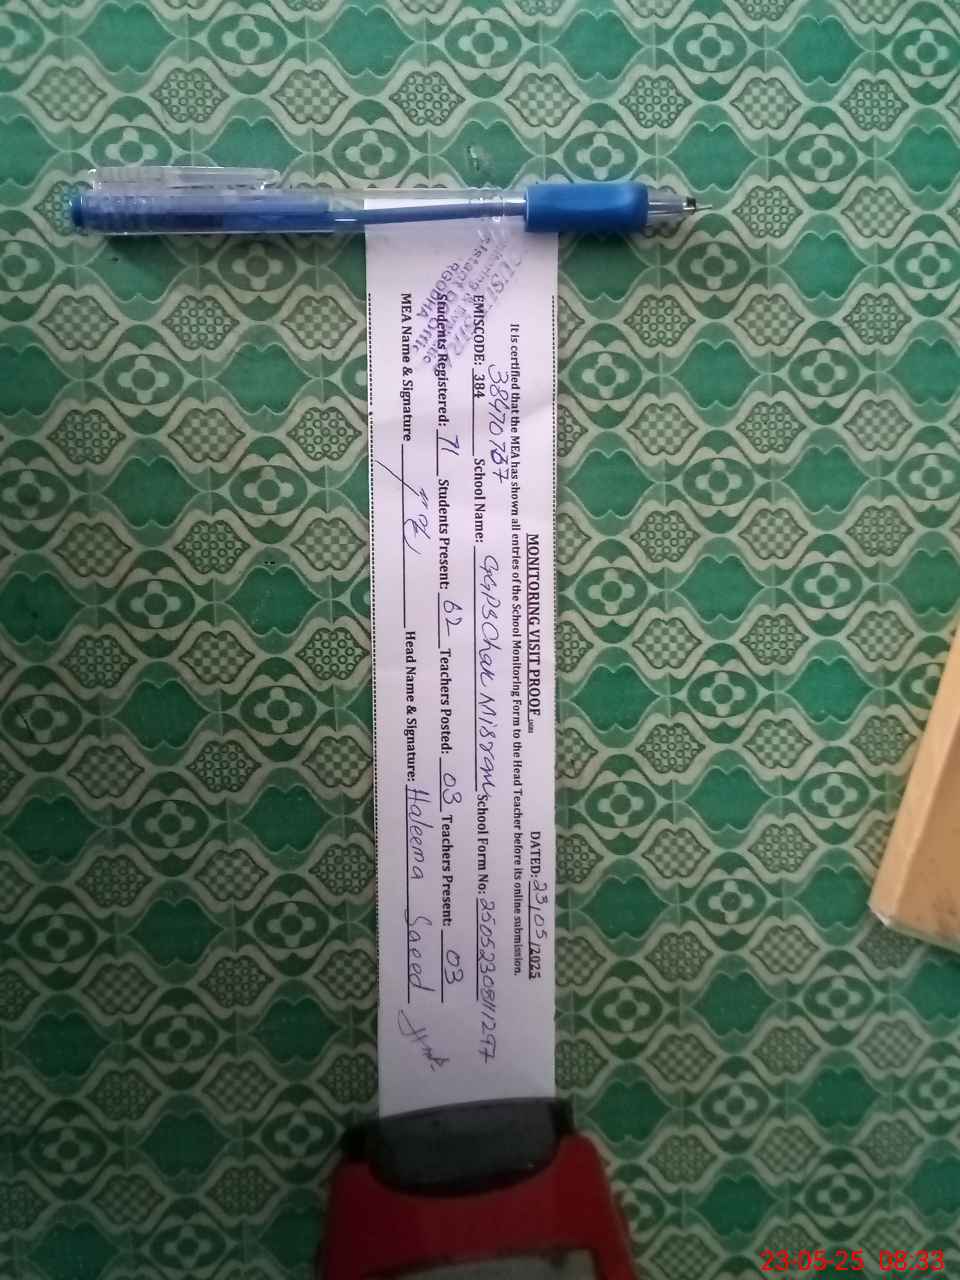 MONITORING VISIT PROOF DATED: 23,05,2025
It is certified that the MEA has shown all entries of the School Monitoring Form to the Head Teacher before its online submission.
38470787
EMISCODE: 384 School Name: GGPS Chak Misran School Form No: 250523081 1297
Students Registered: 71 Students Present: 62 Teachers Posted: 03 Teachers Present: 03
MEA Name & Signature Head Name & Signature: Haleema Saeed
23-05-25 08:33